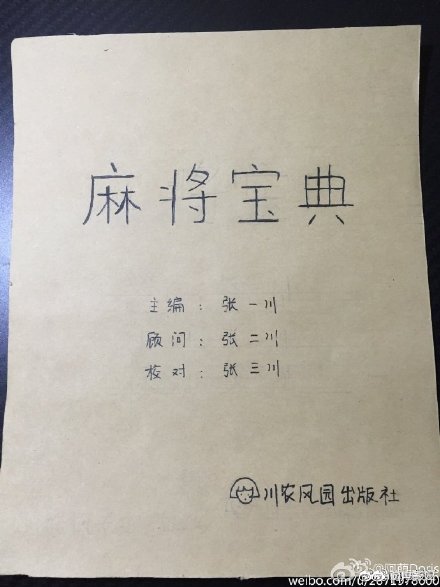 麻将宝典
主编：张一川
顾问：张二川
校对：张三川
川农风园出版社